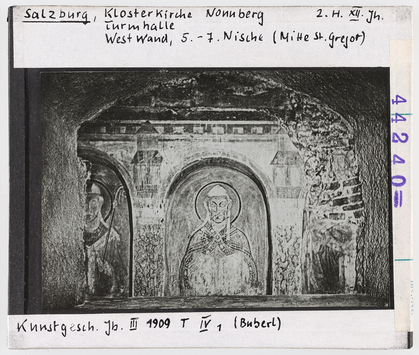 Salzburg, Klosterkirche Nonnberg 2. H. XII. Jh.
Turmhalle
West Wand, 5.-7. Nische (Mitte St. Gregor)
44240=
Kunstgesch. Jb. III 1909 T IV, 1 (Buberl)